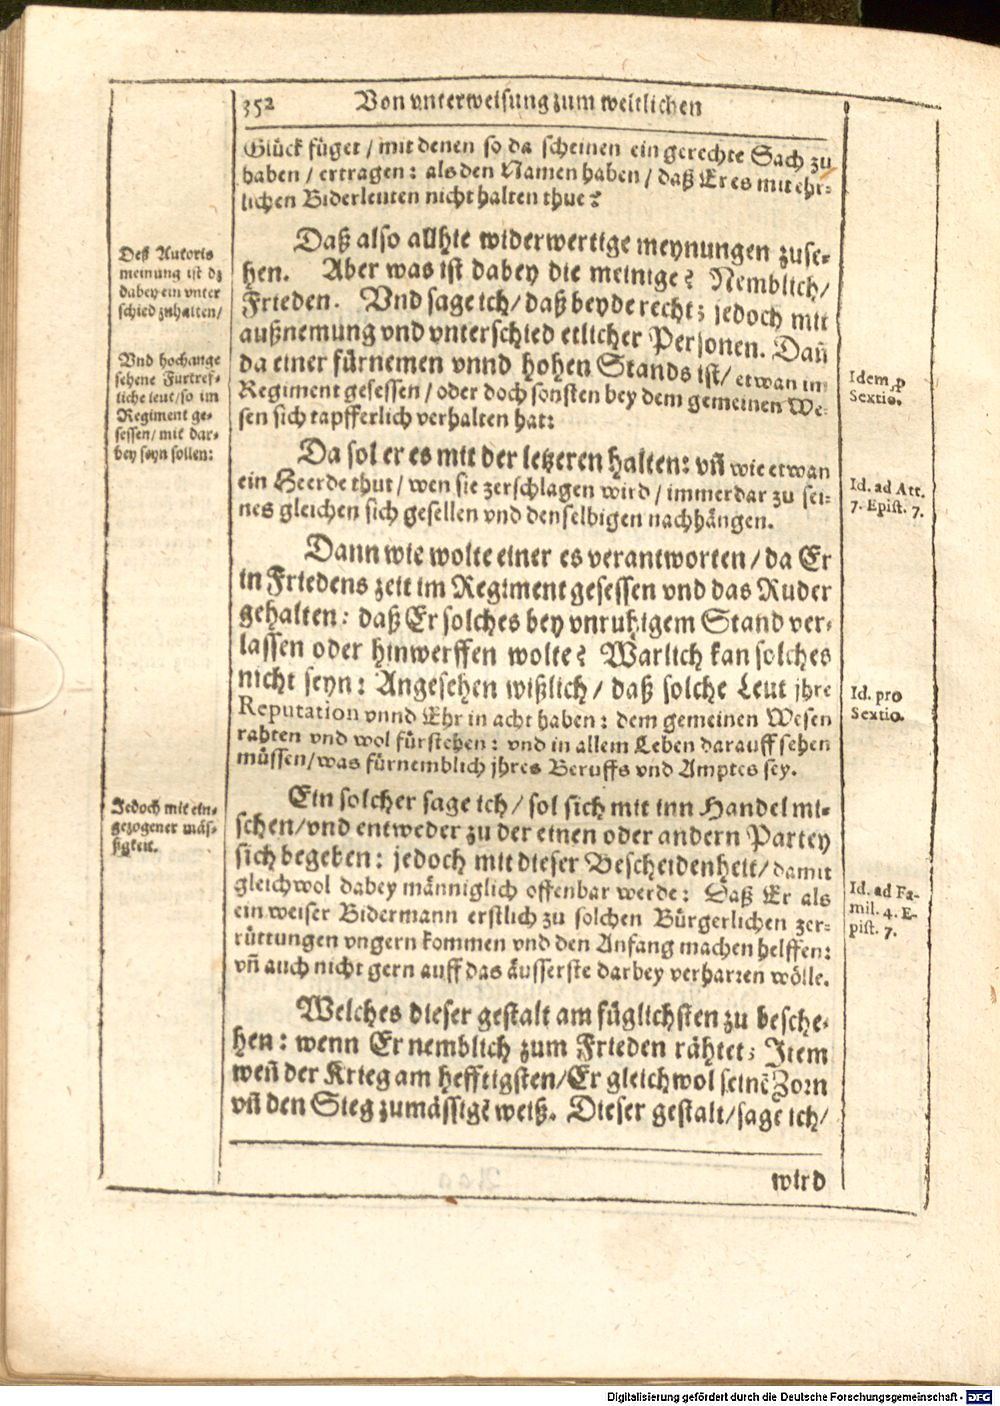 352 Von vnterweisung zum weltlichen
Glück füget / mit denen so da scheinen ein gerechte Sach zu
haben / ertragen: als den Namen haben / daß Er es mit ehr-
lichen Biderleuten nicht halten thue?
Daß also allhie widerwertige meynungen zuse-
hen. Aber was ist dabey die meinige? Nemblich /
Frieden. Vnd sage ich / daß beyde recht; jedoch mit
außnemung vnd vnterschied etlicher Personen. Dañ
da einer fürnemen vnnd hohen Stands ist / etwan im
Regiment gesessen / oder doch sonsten bey dem gemeinen We-
sen sich tapfferlich verhalten hat:
Da sol er es mit der letzeren halten: vñ wie etwan
ein Heerde thut / wen sie zerschlagen wird / immerdar zu sei-
nes gleichen sich gesellen vnd denselbigen nachhängen.
Dann wie wolte einer es verantworten / da Er
in Friedens zeit im Regiment gesessen vnd das Ruder
gehalten: daß Er solches bey vnruhigem Stand ver-
lassen oder hinwerffen wolte? Warlich kan solches
nicht seyn: Angesehen wißlich / daß solche Leut jhre
Reputation vnnd Ehr in acht haben: dem gemeinen Wesen
rahten vnd wol fürstehen: vnd in allem Leben darauff sehen
müssen / was fürnemblich jhres Beruffs vnd Amptes sey.
Ein solcher sage ich / sol sich mit inn Handel mi-
schen / vnd entweder zu der einen oder andern Partey
sich begeben: jedoch mit dieser Bescheidenheit / damit
gleichwol dabey männiglich offenbar werde: Daß Er als
ein weiser Bidermann erstlich zu solchen Bürgerlichen zer-
rüttungen vngern kommen vnd den Anfang machen helffen:
vñ auch nicht gern auff das äusserste darbey verharren wölle.
Welches dieser gestalt am füglichsten zu besche-
hen: wenn Er nemblich zum Frieden rähtet; Item
weñ der Krieg am hefftigsten / Er gleichwol seinē Zorn
vñ den Sieg zumässigē weiß. Dieser gestalt / sage ich /
wird
Deß Autoris
meinung ist dz
dabey ein vnter
schied zuhalten /
Vnd hochange
sehene Fürtref-
liche leut / so im
Regiment ge-
sessen / mit dar-
bey seyn sollen:
Jedoch mit ein-
gezogener mäs-
sigkeit.
Idem p
Sextio.
Id. ad Att.
7. Epist. 7.
Id. pro
Sextio.
Id. ad Fa-
mil. 4. E-
pist. 7.
Digitalisierung gefördert durch die Deutsche Forschungsgemeinschaft - DFG